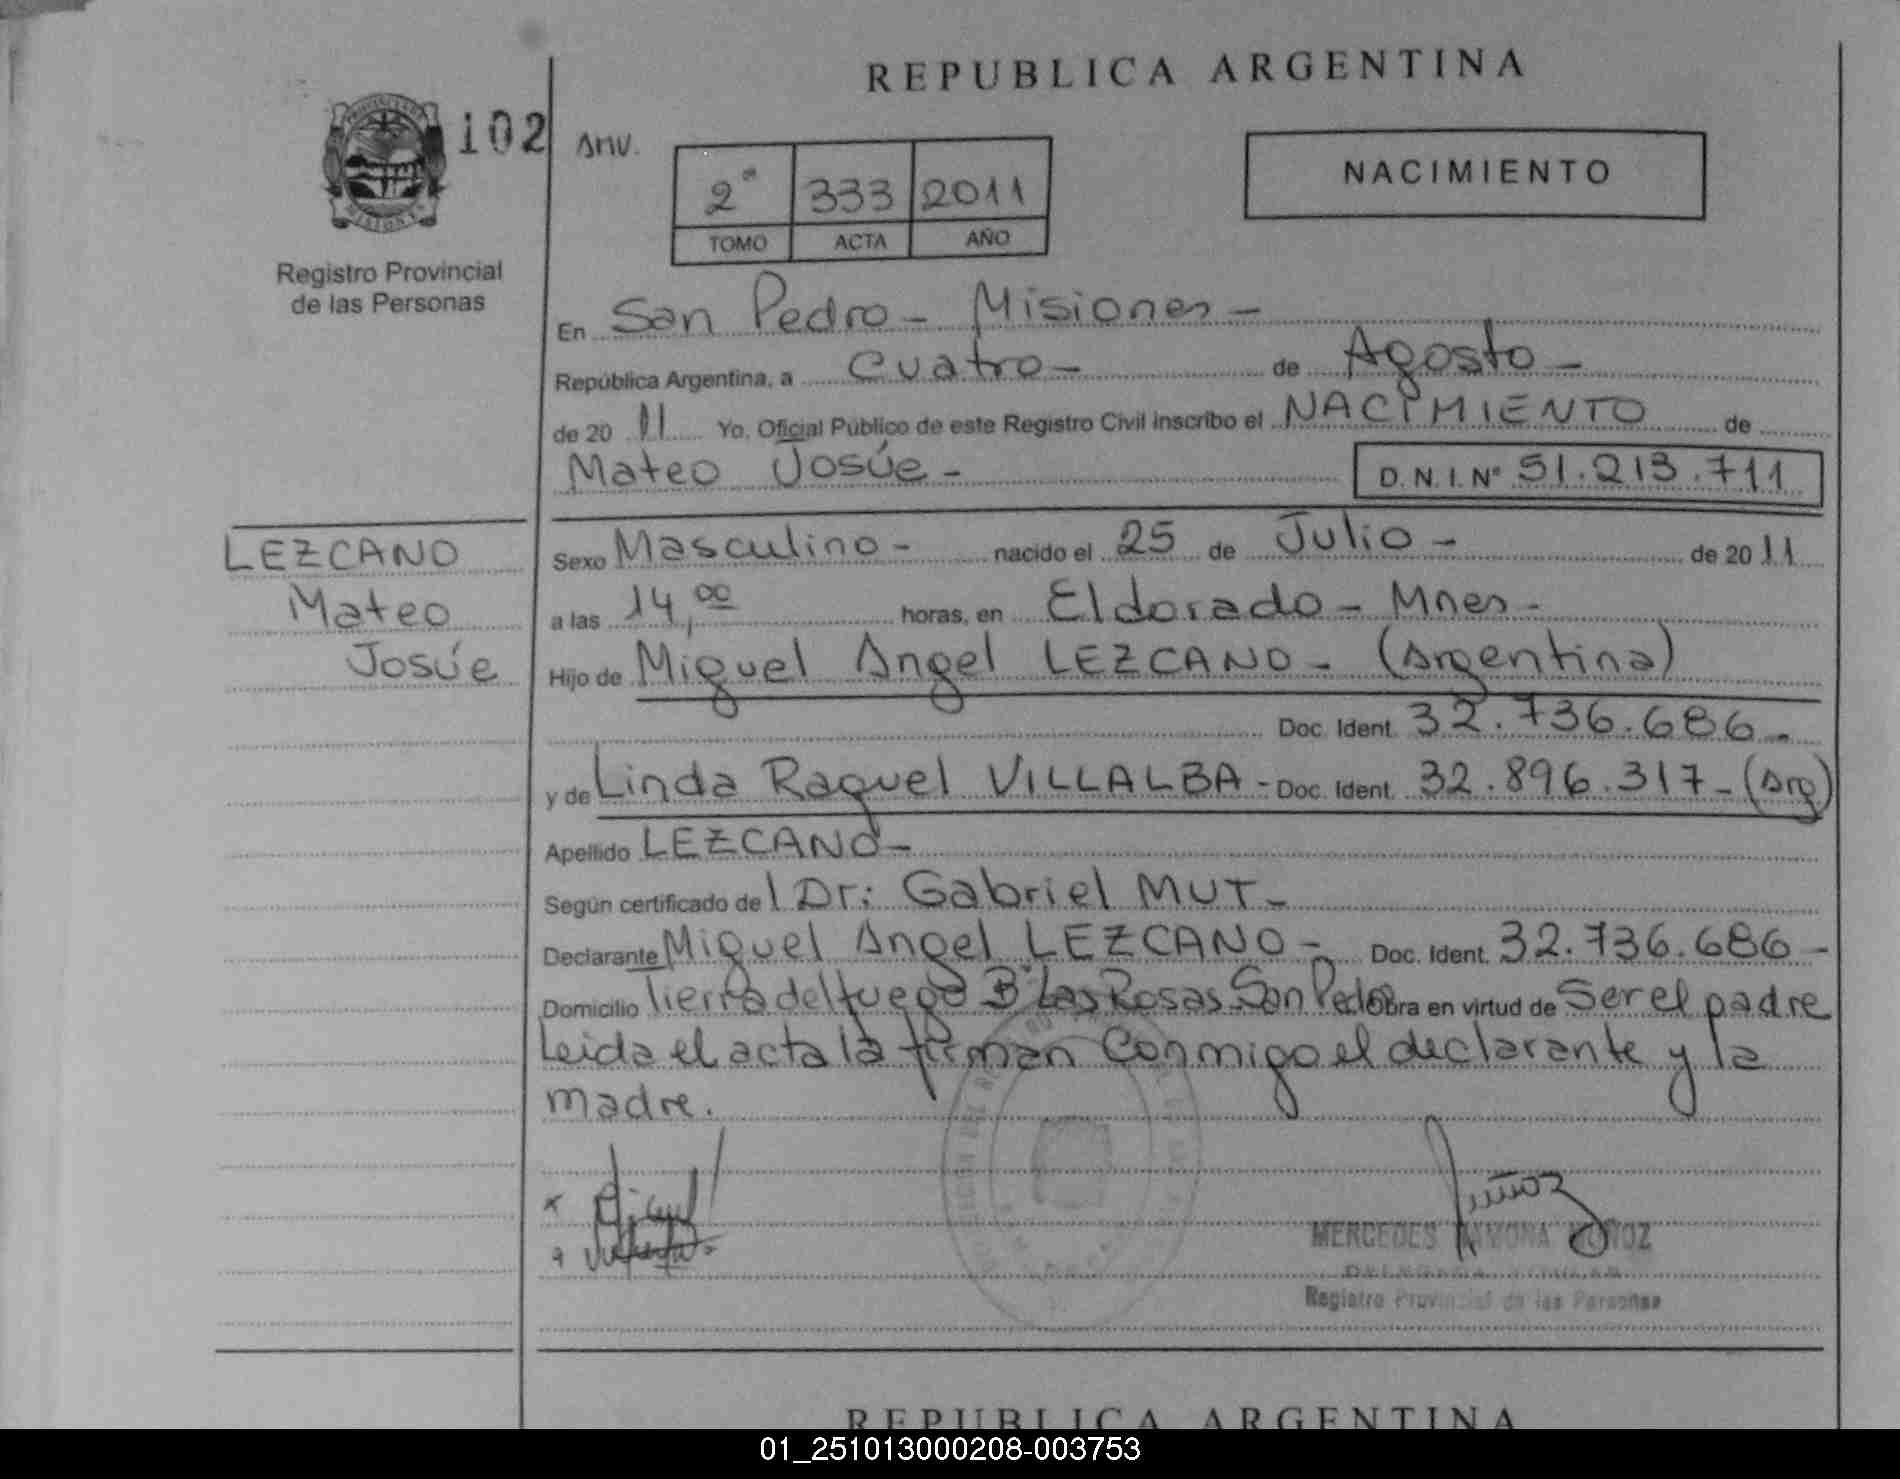 REPUBLICA ARGENTINA
102 Anv.
NACIMIENTO
2ª 333 2011
TOMO ACTA AÑO
Registro Provincial
de las Personas
En San Pedro - Misiones -
República Argentina, a Cuatro - de Agosto -
de 2011 Yo, Oficial Público de este Registro Civil inscribo el NACIMIENTO de
Mateo Josúe - D.N.I.Nº 51.213.711
LEZCANO
Mateo
Josúe
Sexo Masculino - nacido el 25 de Julio - de 2011
a las 14,00 horas, en Eldorado - Mnes -
Hijo de Miguel Angel LEZCANO - (Argentina)
Doc. Ident. 32.736.686 -
y de Linda Raquel VILLALBA - Doc. Ident. 32.896.317 - (Arg)
Apellido LEZCANO -
Según certificado del Dr: Gabriel MUT -
Declarante Miguel Angel LEZCANO - Doc. Ident. 32.736.686 -
Domicilio Tierra del fuego Bº Las Rosas San Pedro Obra en virtud de Ser el padre
Leida el acta la firman Conmigo el declarante y la
madre.
MERCEDES RAMONA MUÑOZ
Registro Provincial de las Personas
REPUBLICA ARGENTINA
01_251013000208-003753